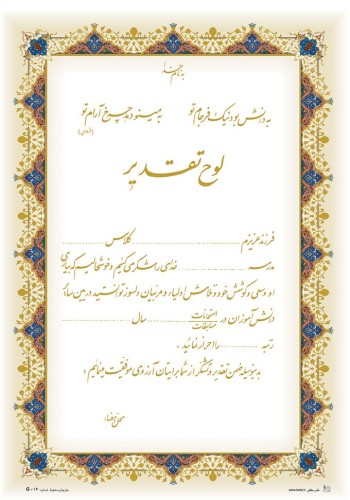 به نام خدا
به دانش بود نیک فرجام تو    به مینو دهد چرخ آرام تو
(فردوسی)
لوح تقدیر
فرزند عزیزم ........ کلاس ........
مدرسه ........ خدای را شکر می کنیم و خوشحالیم که بیاری
او و سعی و کوشش خود و تلاش اولیاء و مربیان دلسوز توانستید در بین سایر
دانش آموزان در امتحانات / مسابقات ........ سال ........
رتبه ........ را احراز نمائید.
بدینوسیله ضمن تقدیر و تشکر از شما برایتان آرزوی موفقیت مینمایم.
محل امضاء
G-014